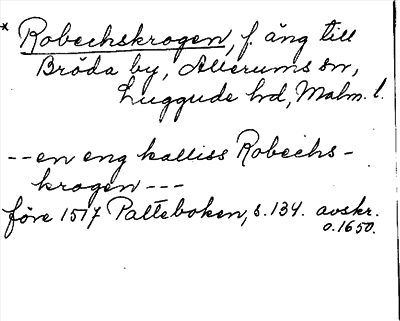 * Robechskrogen, f. äng till
Bröda by, Allerums sn,
Luggude hd, Malm. l.
-- en eng kalliss Robechs-
krogen ---
före 1517 Palteboken, s. 134. avskr.
o. 1650.